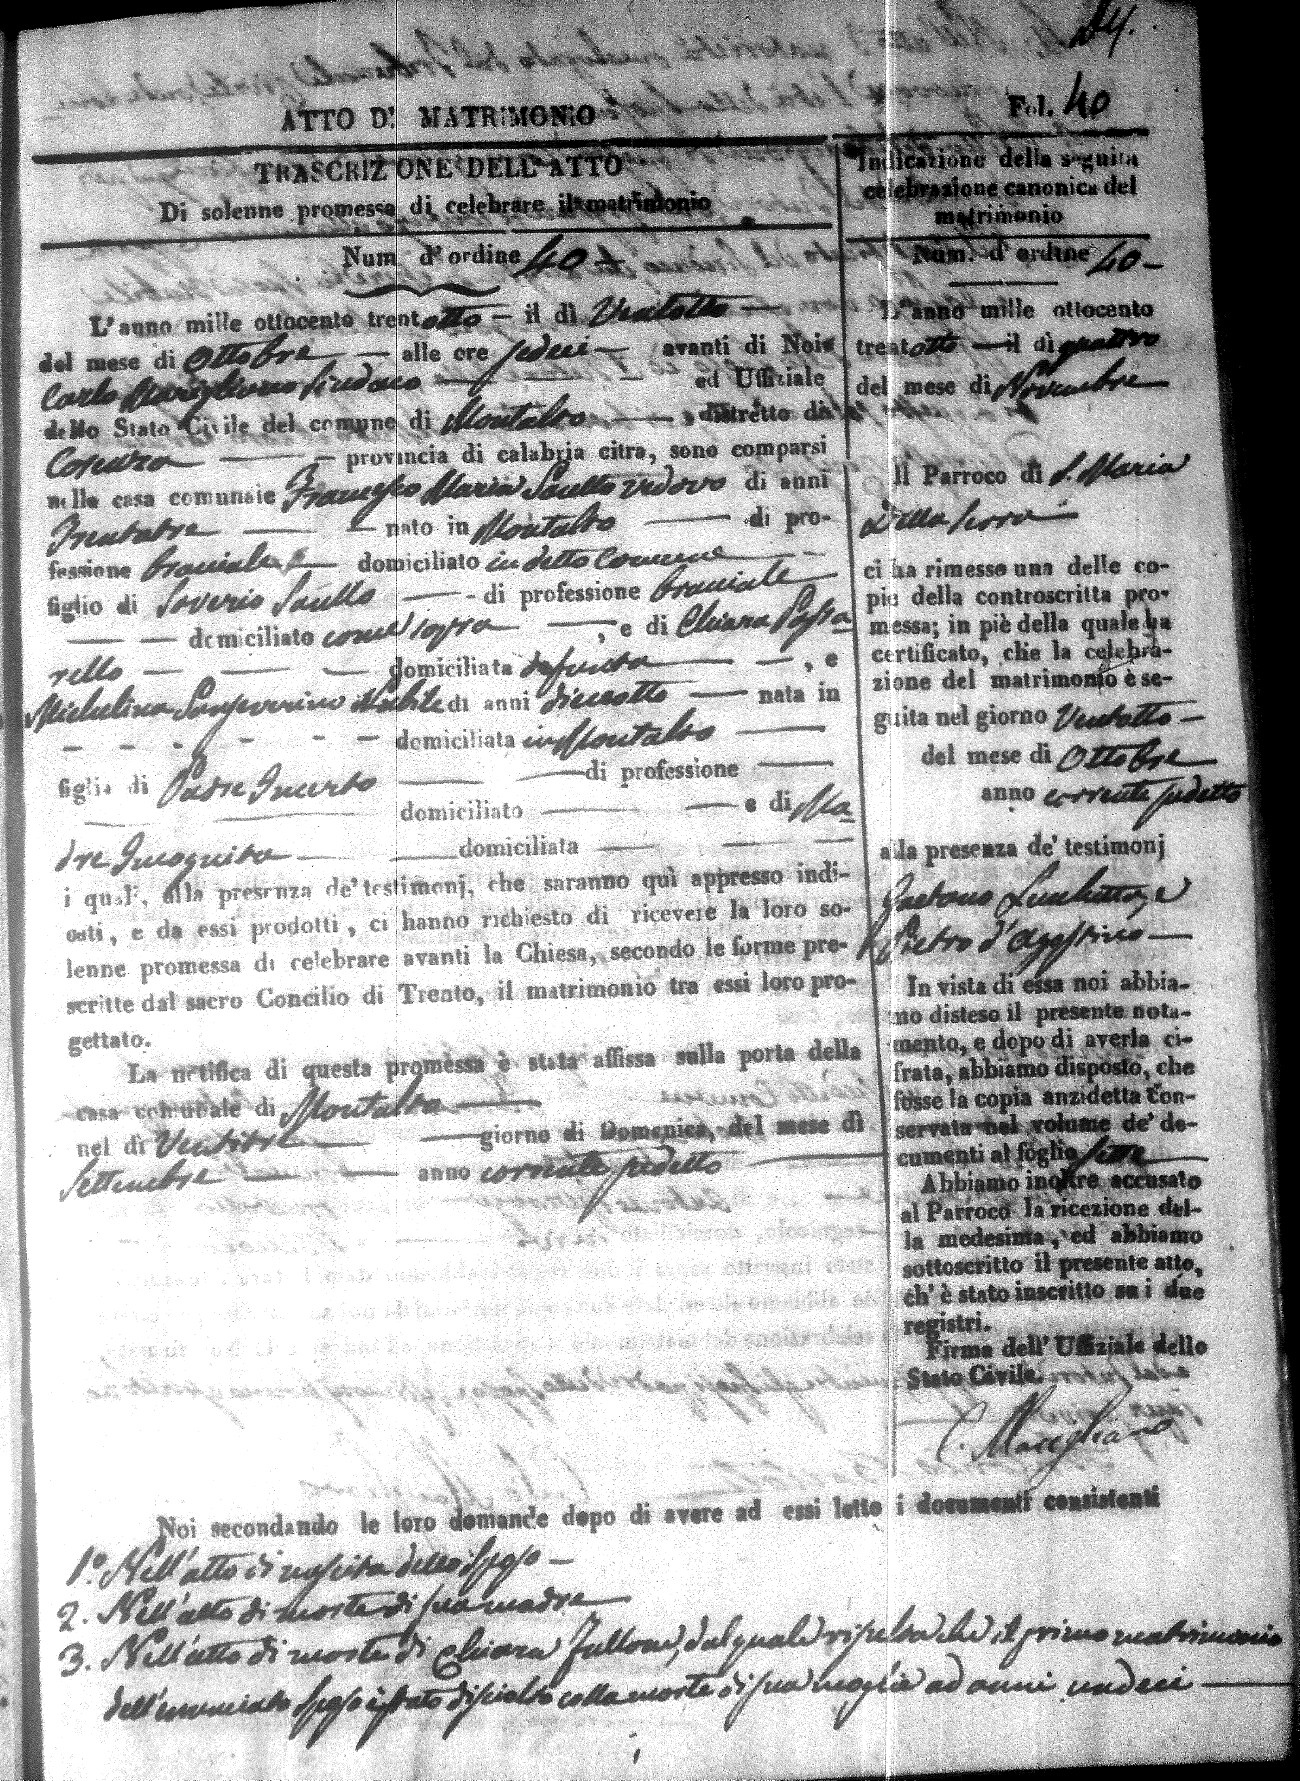 24.
ATTO DI MATRIMONIO
Fol. 40
TRASCRIZIONE DELL'ATTO
Di solenne promessa di celebrare il matrimonio
Num. d'ordine 40
L'anno mille ottocento trentotto — il dì Ventotto —
del mese di Ottobre — alle ore sedici — avanti di Noi
Carlo Marigliano Sindaco — ed Uffiziale
dello Stato Civile del comune di Montalto — , distretto di
Cosenza — provincia di calabria citra, sono comparsi
nella casa comunale Francesco Maria Saullo vedovo di anni
Trentatre — nato in Montalto — di pro-
fessione bracciale — domiciliato in detto Comune —
figlio di Saverio Saullo — di professione bracciale
— domiciliato come sopra — , e di Chiara Passa
rello — domiciliata defunta — , e
Michelina Sanseverino Nubile di anni dieciotto — nata in
— domiciliata in Montalto —
figlia di Padre Incerto — di professione —
— domiciliato — e di Ma
dre Incognita — domiciliata —
i quali, alla presenza de' testimonj, che saranno quì appresso indi-
cati, e da essi prodotti, ci hanno richiesto di ricevere la loro so-
lenne promessa di celebrare avanti la Chiesa, secondo le forme pre-
scritte dal sacro Concilio di Trento, il matrimonio tra essi loro pro-
gettato.
La notifica di questa promessa è stata affissa sulla porta della
casa comunale di Montalto —
nel dì Ventitre — giorno di Domenica, del mese di
Settembre — anno corrente sudetto —
Indicazione della seguita
celebrazione canonica del
matrimonio
Num. d'ordine 40 —
L'anno mille ottocento
trentotto — il dì quattro
del mese di Novembre
Il Parroco di S. Maria
Della Serra —
ci ha rimesso una delle co-
pie della controscritta pro-
messa; in piè della quale ha
certificato, che la celebra-
zione del matrimonio è se-
guita nel giorno Ventotto —
del mese di Ottobre
anno corrente sudetto
alla presenza de' testimonj
Gaetano e
Pietro d'Agostino —
In vista di essa noi abbia-
mo disteso il presente nota-
mento, e dopo di averla ci-
frata, abbiamo disposto, che
fosse la copia anzidetta con-
servata nel volume de' do-
cumenti al foglio
Abbiamo inoltre accusato
al Parroco la ricezione del-
la medesima, ed abbiamo
sottoscritto il presente atto,
ch'è stato inscritto su i due
registri.
Firma dell'Uffiziale dello
Stato Civile.
C. Marigliano
Noi secondando le loro domande dopo di avere ad essi letto i documenti consistenti
1.° Nell'atto di nascita dello sposo —
2. Nell'atto di morte di sua madre —
3. Nell'atto di morte di Chiara Fullone, dal quale risulta che il primo matrimonio
dell'enunciato sposo è stato disciolto colla morte di sua moglie ad anni undeci —